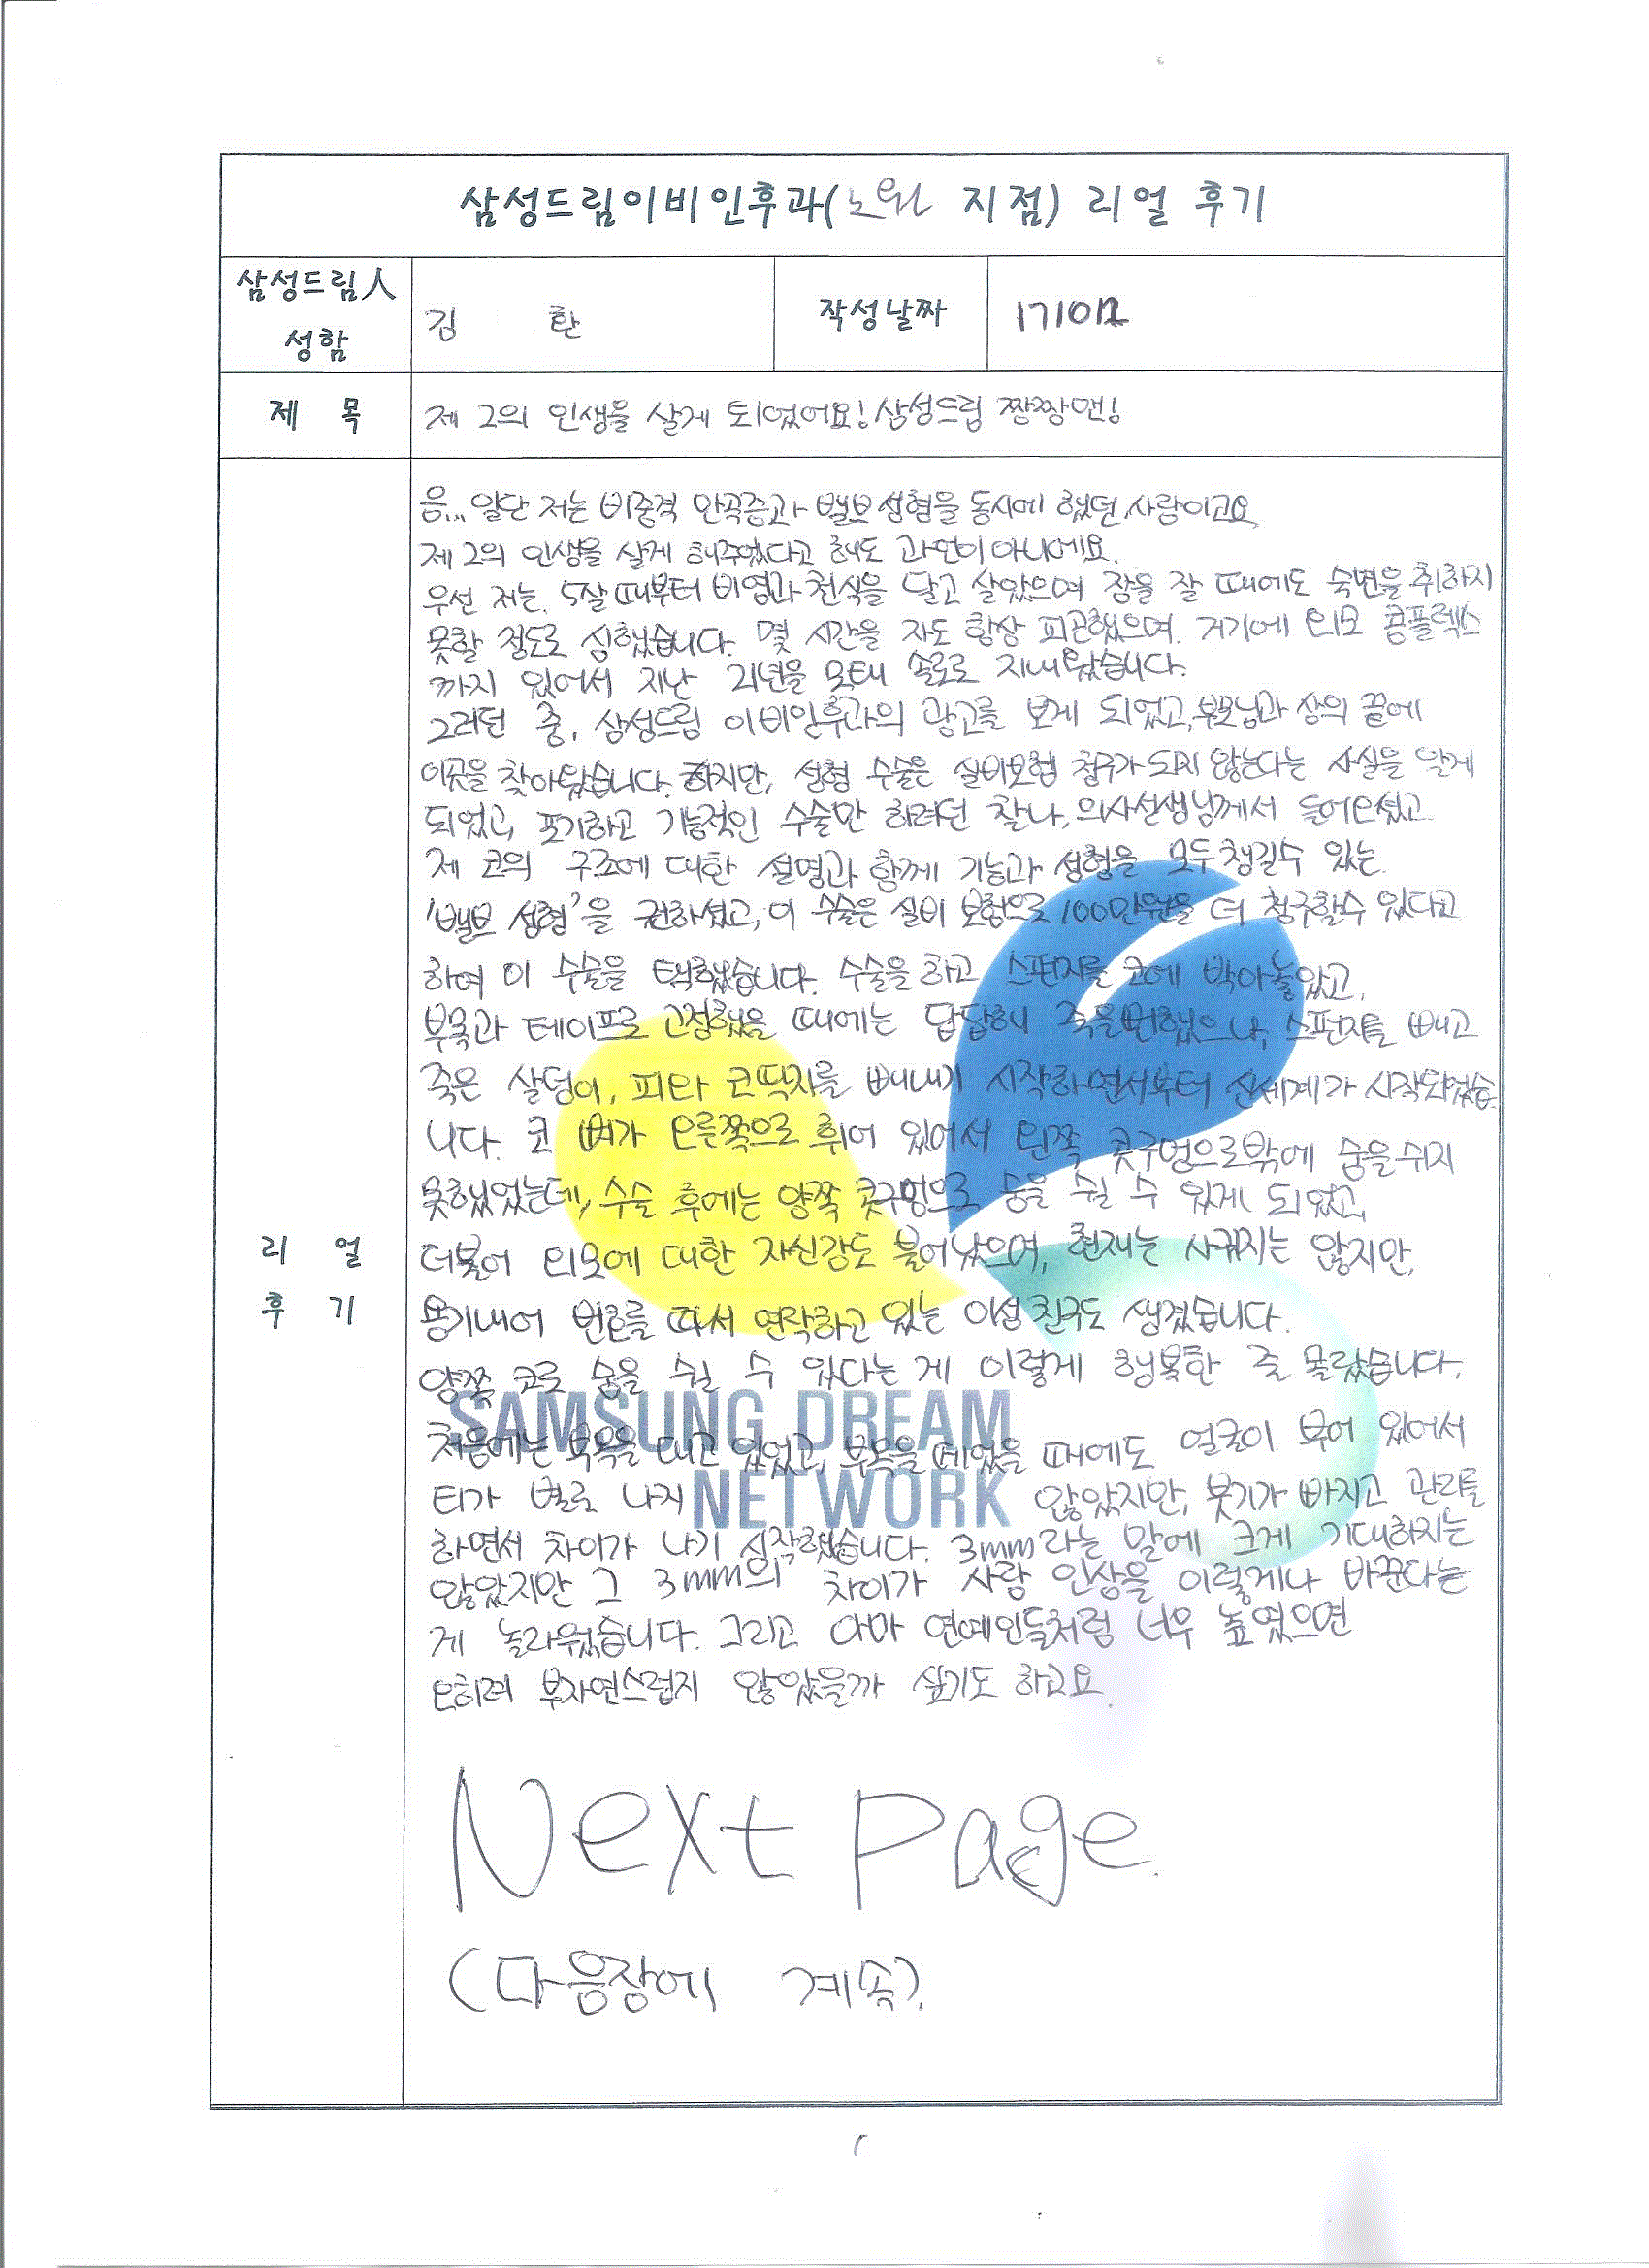 삼성드림이비인후과(노원 지점) 리얼 후기
삼성드림人 성함
김 환
작성날짜
171012
제 목
제 2의 인생을 살게 되었어요! 삼성드림 짱짱맨!
리 얼 후 기
음... 일단 저는 비중격 만곡증과 밸브 성형을 동시에 했던 사람이고요
제 2의 인생을 살게 해주었다고 해도 과언이 아니에요.
우선 저는 5살 때부터 비염과 천식을 달고 살았으며 잠을 잘 때에도 숙면을 취하지
못할 정도로 심했습니다. 몇 시간을 자도 항상 피곤했으며. 거기에 외모 콤플렉스
까지 있어서 지난 21년을 모태 솔로로 지내왔습니다.
그러던 중, 삼성드림 이비인후과의 광고를 보게 되었고, 부모님과 상의 끝에
이곳을 찾아왔습니다. 하지만, 성형 수술은 실비보험 청구가 되지 않는다는 사실을 알게
되었고, 포기하고 기능적인 수술만 하려던 찰나, 의사선생님께서 들어오셨고
제 코의 구조에 대한 설명과 함께 기능과 성형을 모두 챙길수 있는
'밸브 성형'을 권하셨고, 이 수술은 실비 보험으로 100만원을 더 청구할수 있다고
하여 이 수술을 택했습니다. 수술을 하고 스펀지를 코에 박아놓았고,
부목과 테이프로 고정했을 때에는 답답해 죽을뻔했으나, 스펀지를 빼고
죽은 살덩이, 피와 코딱지를 빼내기 시작하면서부터 신세계가 시작되었습
니다. 코 뼈가 오른쪽으로 휘어 있어서 왼쪽 콧구멍으로밖에 숨을 쉬지
못했었는데, 수술 후에는 양쪽 콧구멍으로 숨을 쉴 수 있게 되었고,
더불어 외모에 대한 자신감도 불어났으며, 현재는 사귀지는 않지만,
용기내어 번호를 따서 연락하고 있는 이성 친구도 생겼습니다.
양쪽 코로 숨을 쉴 수 있다는 게 이렇게 행복한 줄 몰랐습니다.
처음에는 부목을 대고 있었고, 부목을 떼었을 때에도 얼굴이 부어 있어서
티가 별로 나지 않았지만, 붓기가 빠지고 관리를
하면서 차이가 나기 시작했습니다. 3mm라는 말에 크게 기대하지는
않았지만 그 3mm의 차이가 사람 인상을 이렇게나 바꾼다는
게 놀라웠습니다. 그리고 아마 연예인들처럼 너무 높였으면
오히려 부자연스럽지 않았을까 싶기도 하고요.
SAMSUNG DREAM
NETWORK
Next Page.
(다음장에 계속).